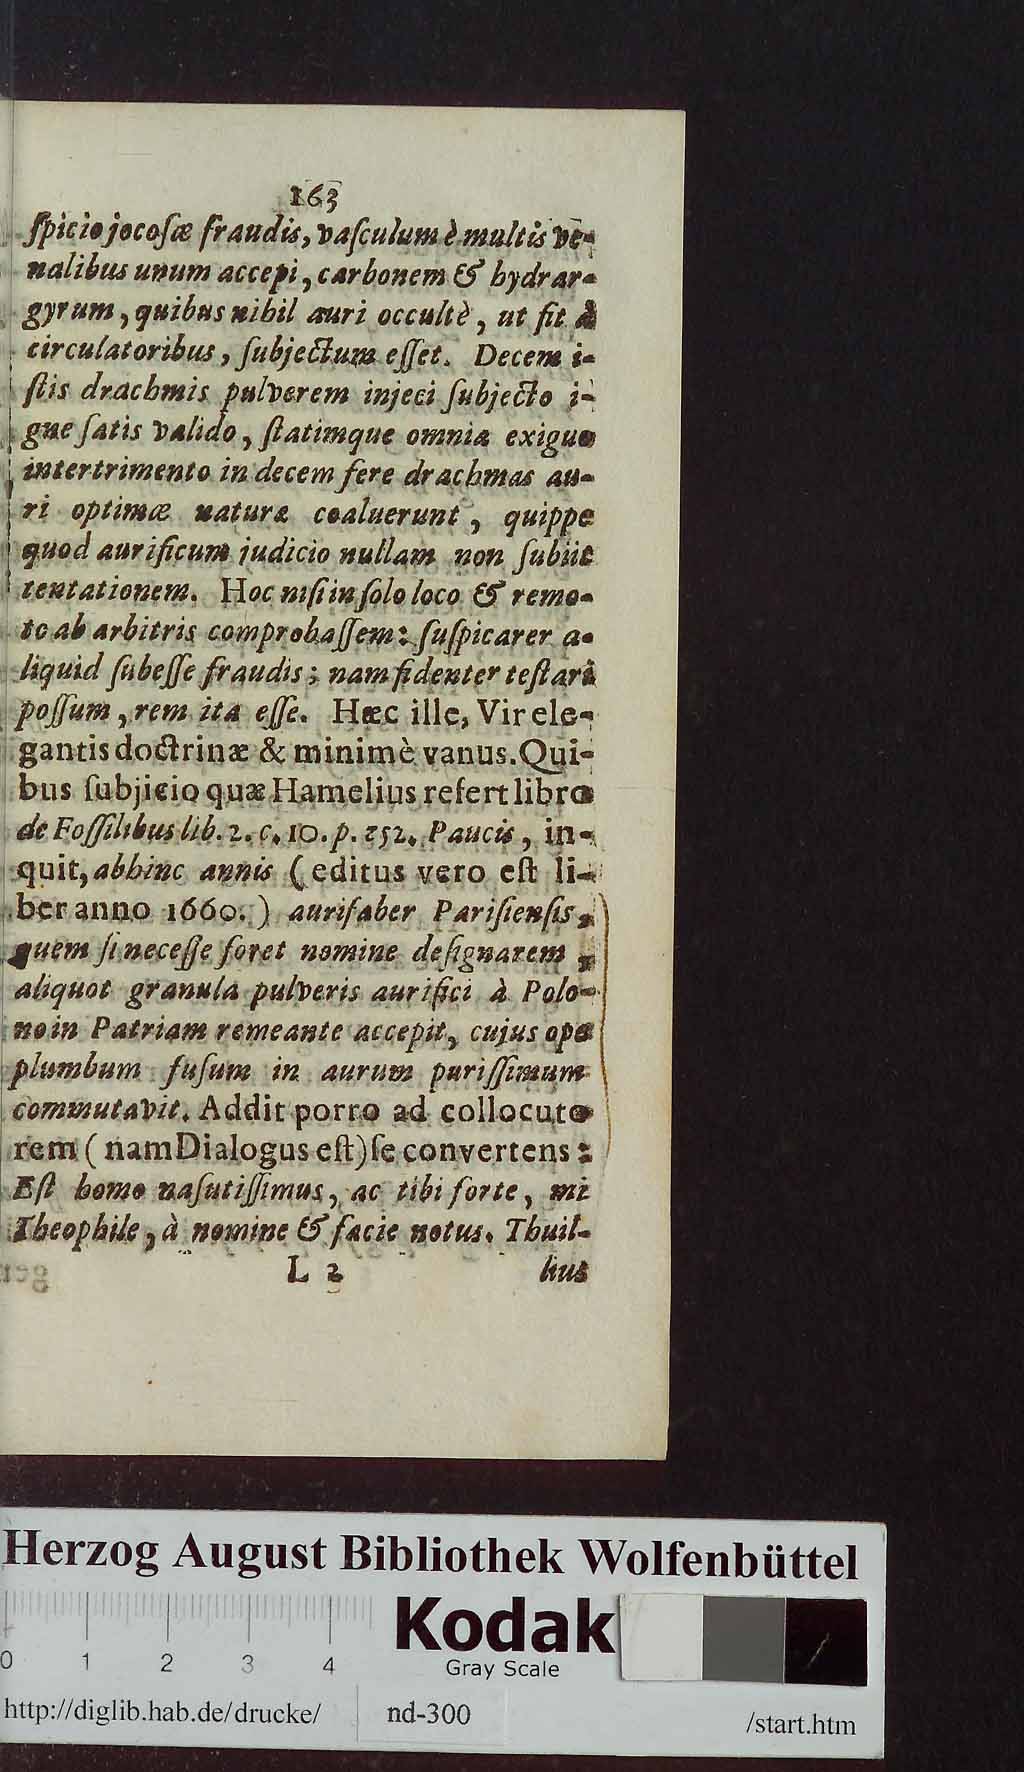 163
ſpicio jocoſæ fraudis, vaſculum è multis ve-
nalibus unum accepi, carbonem & hydrar-
gyrum, quibus nihil auri occultè, ut fit à
circulatoribus, ſubjectum eſſet. Decem i-
ſtis drachmis pulverem injeci ſubjecto i-
gne ſatis valido, ſtatimque omnia exiguo
intertrimento in decem fere drachmas au-
ri optimæ naturæ coaluerunt, quippe
quod aurificum judicio nullam non ſubiit
tentationem. Hoc niſi in ſolo loco & remo-
to ab arbitris comprobaſſem: ſuſpicarer a-
liquid ſubeſſe fraudis; nam fidenter teſtari
poſſum, rem ita eſſe. Hæc ille, Vir ele-
gantis doctrinæ & minimè vanus. Qui-
bus ſubjicio quæ Hamelius refert libro
de Foſſilibus lib. 2. c. 10. p. 252. Paucis, in-
quit, abhinc annis (editus vero eſt li-
ber anno 1660.) aurifaber Pariſienſis,
quem ſi neceſſe foret nomine deſignarem,
aliquot granula pulveris aurifici à Polo-
no in Patriam remeante accepit, cujus ope
plumbum fuſum in aurum puriſſimum
commutavit. Addit porro ad collocuto
rem (nam Dialogus eſt) ſe convertens:
Eſt homo naſutiſſimus, ac tibi forte, mi
Theophile, à nomine & facie notus. Thuil-
L 2 lius
Herzog August Bibliothek Wolfenbüttel
0 1 2 3 4
Kodak
Gray Scale
http://diglib.hab.de/drucke/ nd-300 /start.htm